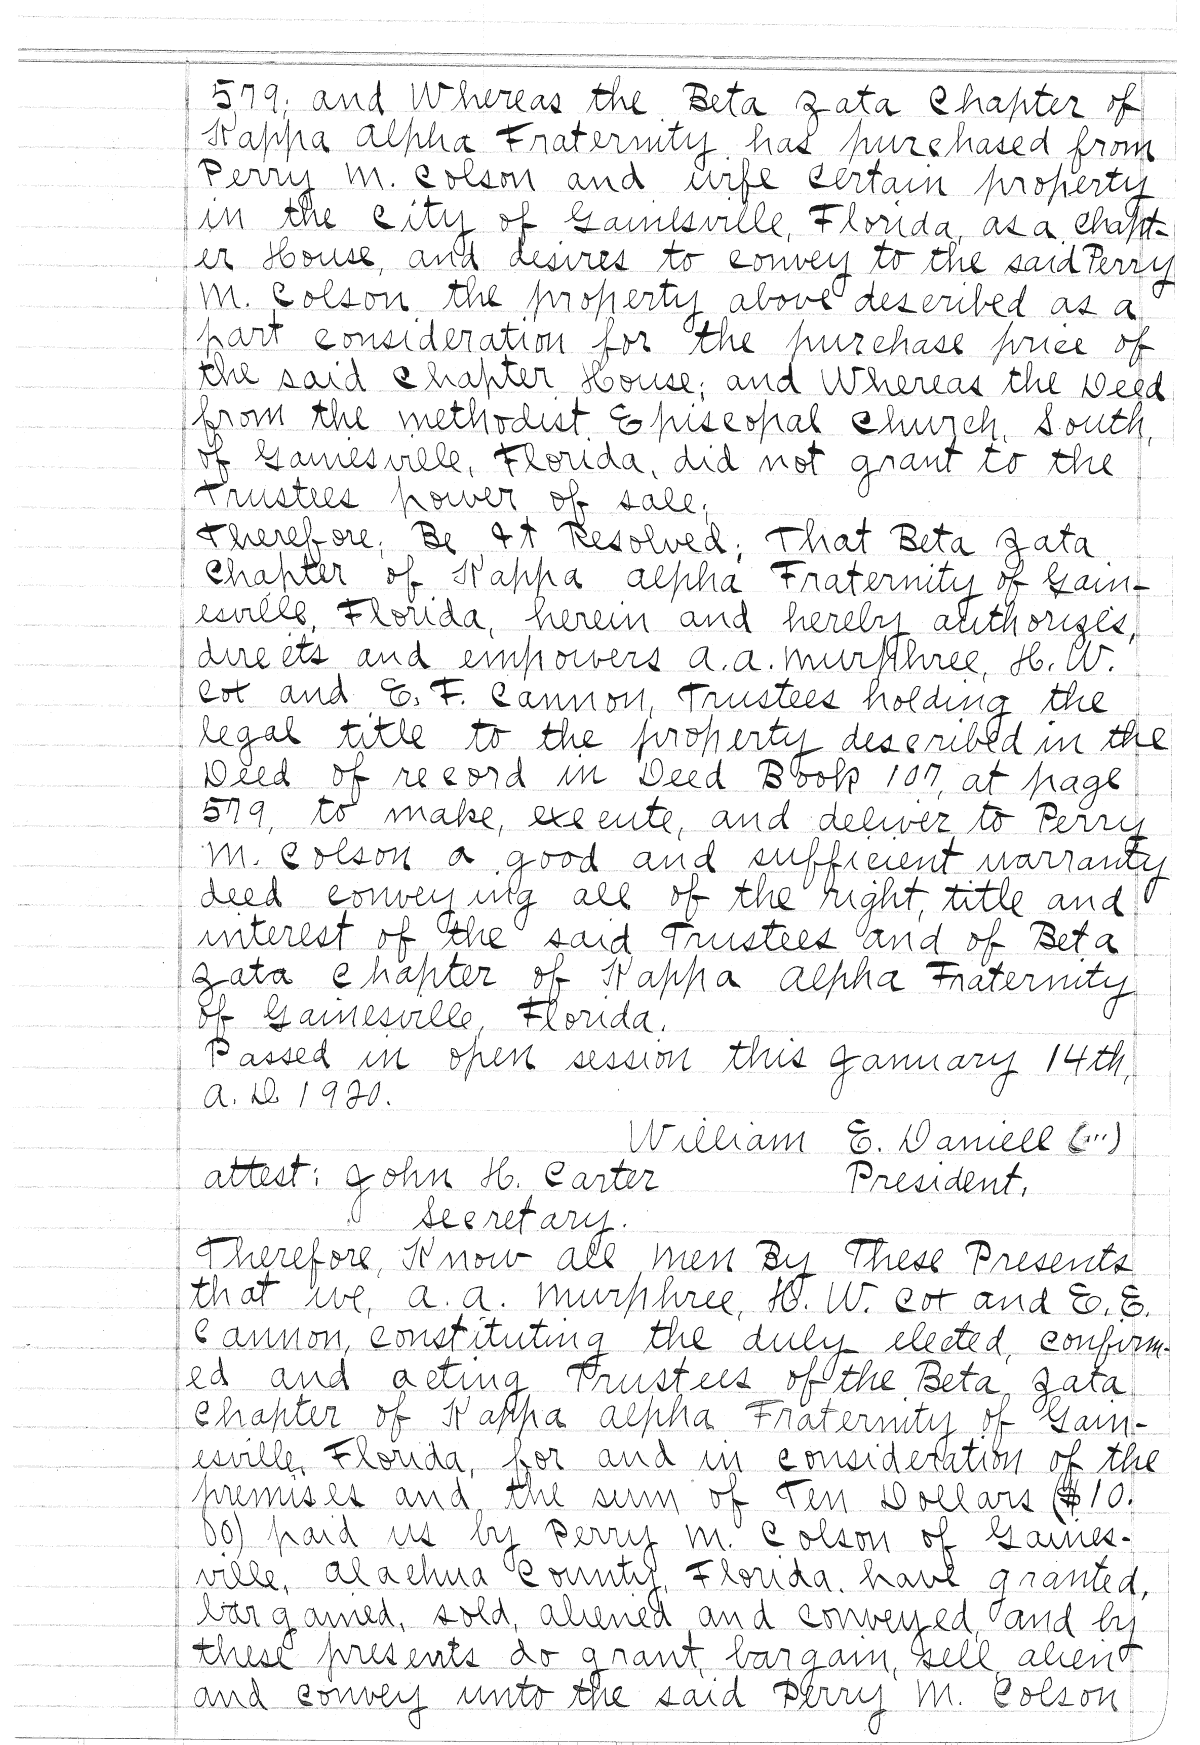 579; and Whereas the Beta Zata Chapter of
Kappa Alpha Fraternity has purchased from
Perry M. Colson and wife certain property
in the City of Gainesville, Florida, as a Chapt-
er House, and desires to convey to the said Perry
M. Colson the property above described as a
part consideration for the purchase price of
the said Chapter House; and Whereas the Deed
from the Methodist Episcopal Church, South,
of Gainesville, Florida, did not grant to the
Trustees power of sale;
Therefore; Be It Resolved; That Beta Zata
Chapter of Kappa Alpha Fraternity of Gain-
esville, Florida, herein and hereby authorizes,
directs and empowers A. A. Murphree, H. W.
Cox and E. F. Cannon, Trustees holding the
legal title to the property described in the
Deed of record in Deed Book 107, at page
579, to make, execute, and deliver to Perry
M. Colson a good and sufficient warranty
deed conveying all of the right, title and
interest of the said Trustees and of Beta
Zata Chapter of Kappa Alpha Fraternity
of Gainesville, Florida.
Passed in open session this January 14th,
A. D. 1920.
William E. Daniell
Attest: John H. Carter President,
Secretary.
Therefore, Know all Men By These Presents
that we, A. A. Murphree, H. W. Cox and E. E.
Cannon, constituting the duly elected, confirm-
ed and acting Trustees of the Beta Zata
Chapter of Kappa Alpha Fraternity of Gain-
esville, Florida, for and in consideration of the
premises and the sum of Ten Dollars ($10.
00) paid us by Perry M. Colson of Gaines-
ville, Alachua County, Florida, have granted,
bargained, sold, aliened and conveyed, and by
these presents do grant, bargain, sell, alien
and convey unto the said Perry M. Colson